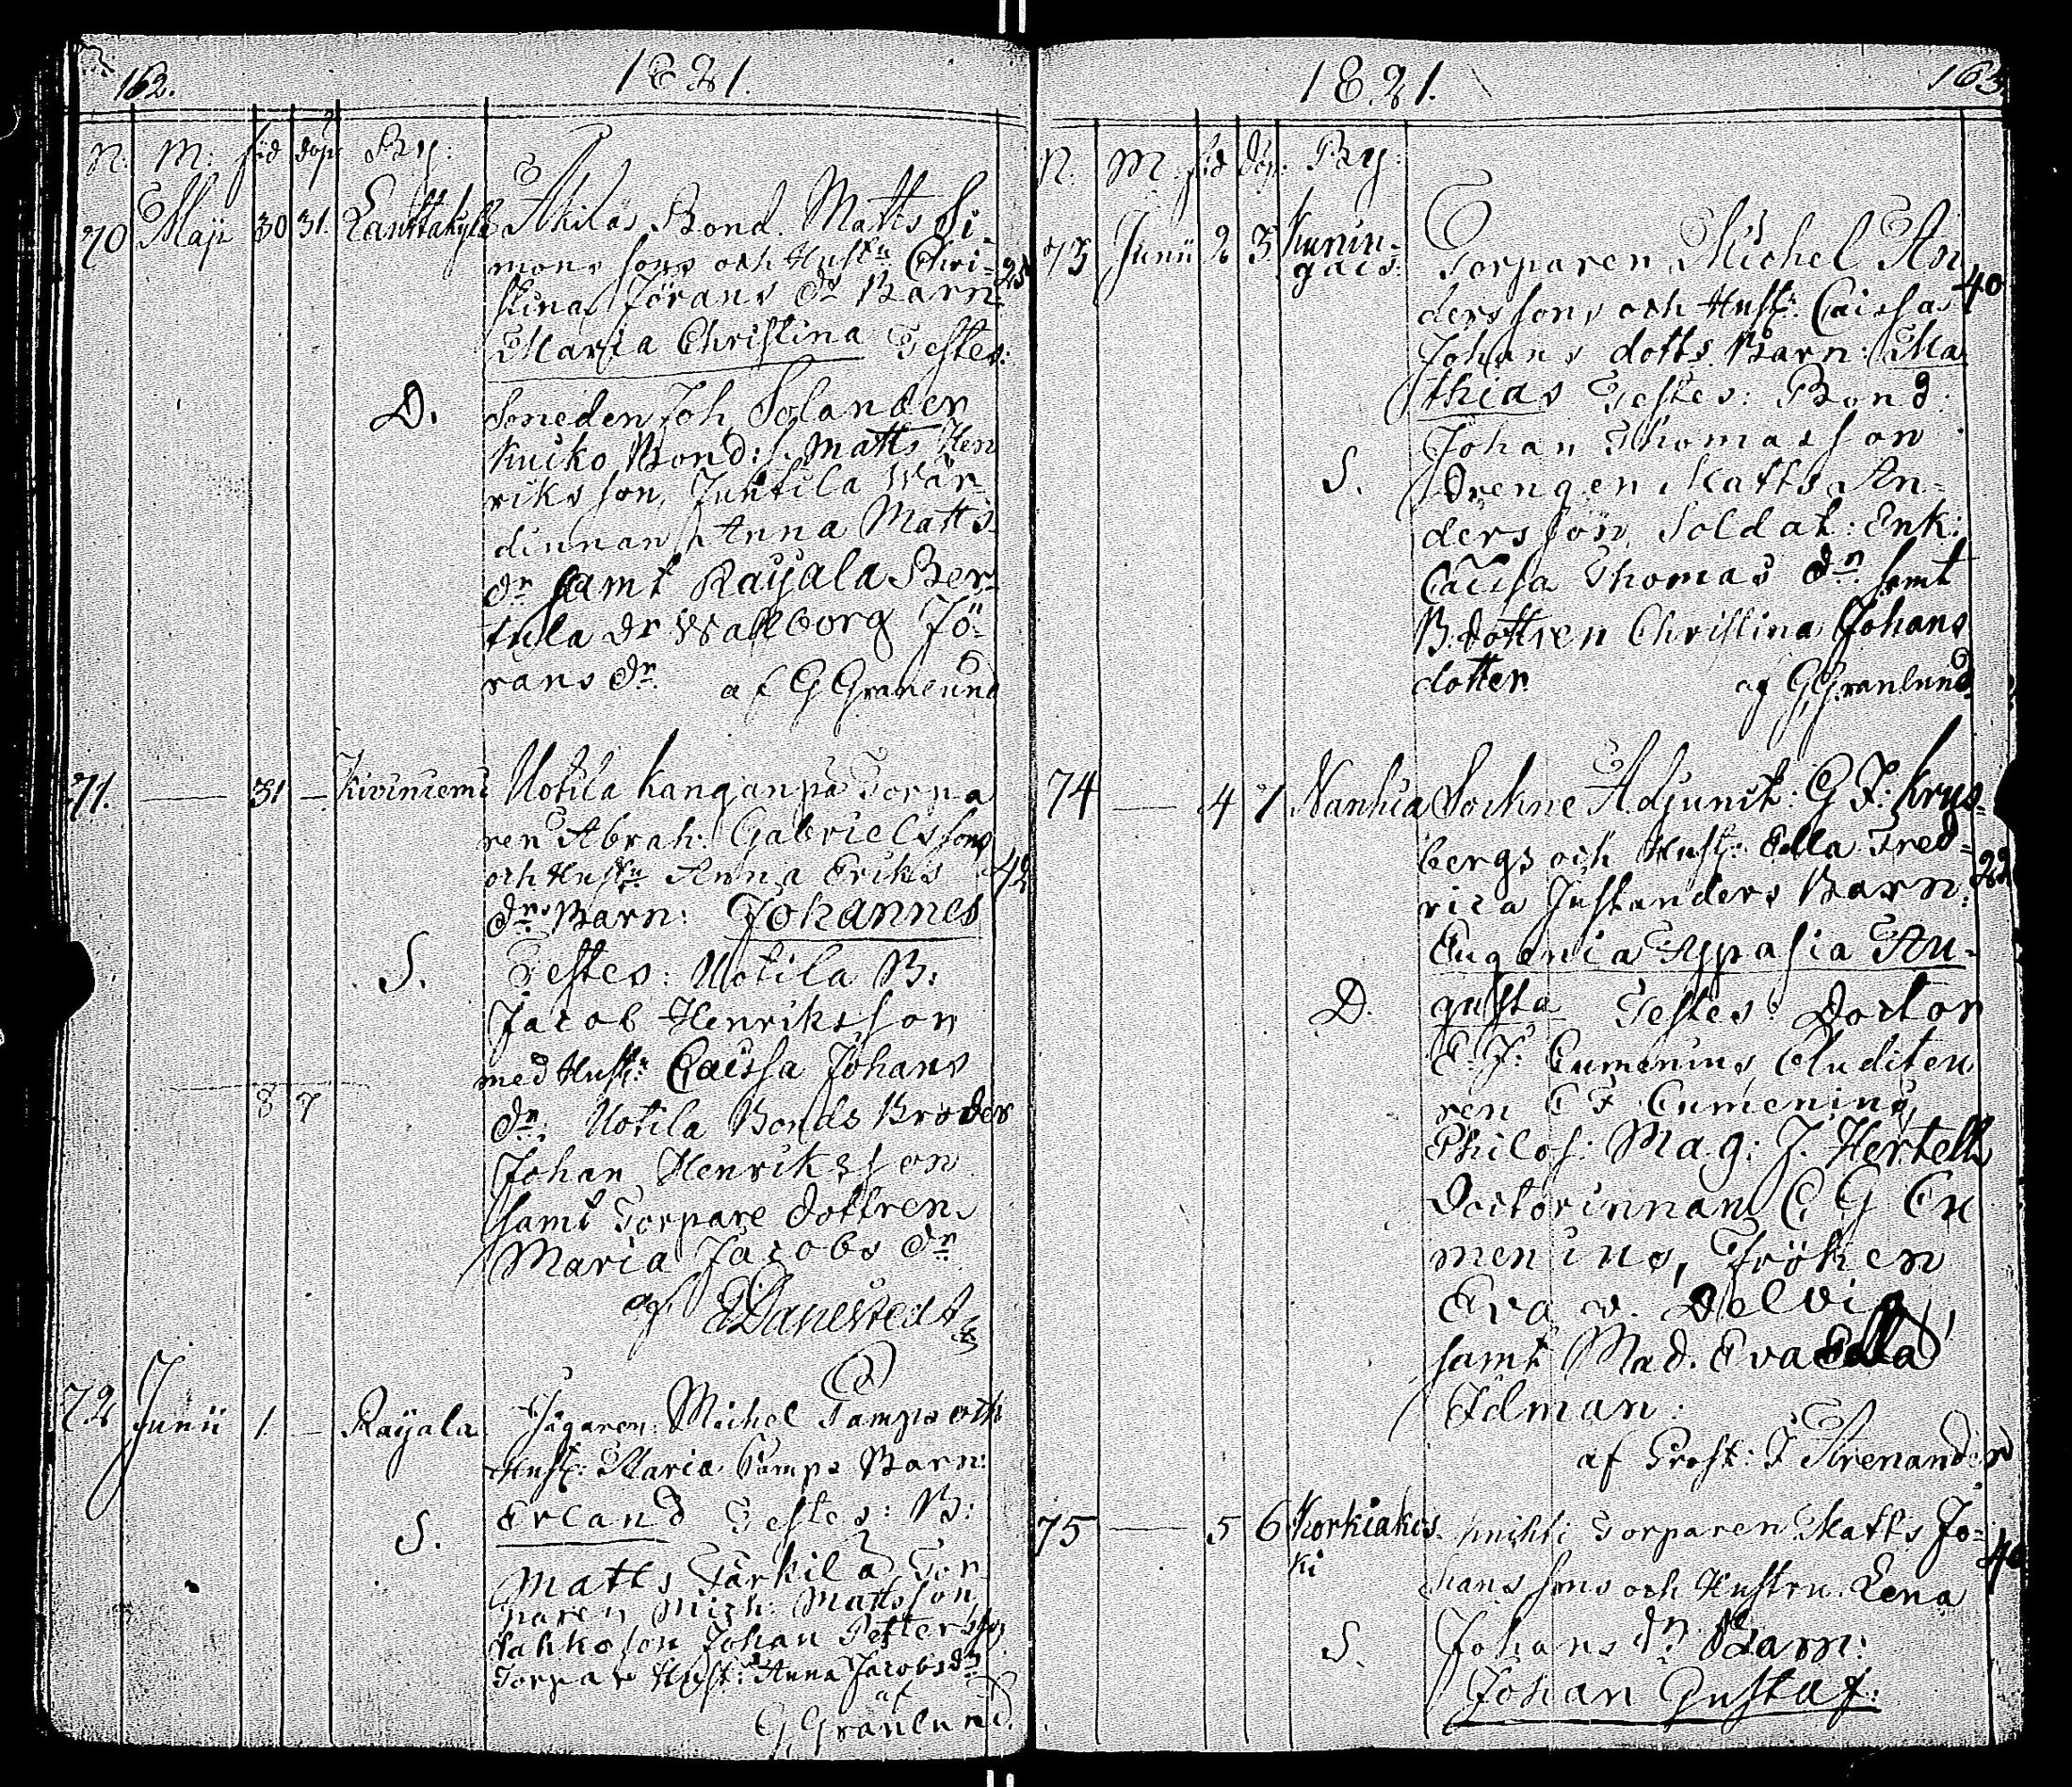 162.
1821.
N: M: föd döp: By:
70 Maji 30 31. Lanttakylä
Akilas Bond. Matts Si-
mons sons och Hustr Chri-
stina Jörans dr Barn
Maria Christina Testes:
D.
Smeden Joh. Solander
Kuiko Bond: s. Matts Hen
riks son, Juntila Wär-
dinnan Anna Matts
dr samt Rayala Ber-
tula dr Wallborg Jö-
rans dr. af G Granlund
71. 31 Kiviniemi
Uotila Kanganpä Torpa
ren Abrah: Gabrielssons
och Hustr Anna Eriks 42
drs Barn: Johannes
S.
Testes: Uotila B:
Jacob Henriksson
med Hustr: Caissa Johans
8 7
dr; Uotila Bonds Broder
Johan Henriksson
samt Torpare dottren
Maria Jacobs dr
af
72 Junii 1. Rayala
Michel Tamps och
Hust: Maria Tamps Barn:
Erland Testes: B:
S.
Matts Tärkilä Tor
paren Mich: Mattsson,
son Johan Petters son
Torpar Hust: Anna Jacobs dr
af
G Granlund.
1821.
163
N. M. föd döp: By:
73 Junii 2 3 Kunin-
gais:
Torparen Michel An
40
derssons och Hustr: Caissas
Johans dotts Barn: Ma
thias Testes: Bond:
Johan Thomasson
S.
Drengen Matts An-
dersson, Soldat: Enk:
Caissa Thomas dr. samt
B. dottren Christina Johans
dotter. af G Granlund
74 4 7 Nanhia
Sochne Adjunct: G F: Krys-
bergs och Hustr: Ella Fred-
rica Justanders Barn:
Eugenia Aspasia Au-
D.
gusta Testes: Doctor
E. J: Cumenius, Auditeu
ren C F Cumenius,
Philos: Mag: J. Hertell
Doctorinnan C. G Cu
menius, Fröken
Eva v. Delvig,
samt Mad. Eva Ella
Idman:
af Prost: J Arenander
75 5 6 Korkiakos
ki
Knihti Torparen Matts Jo-
hans sons och Hustru. Lena
S.
Johans dr Barn:
Johan Gustaf: